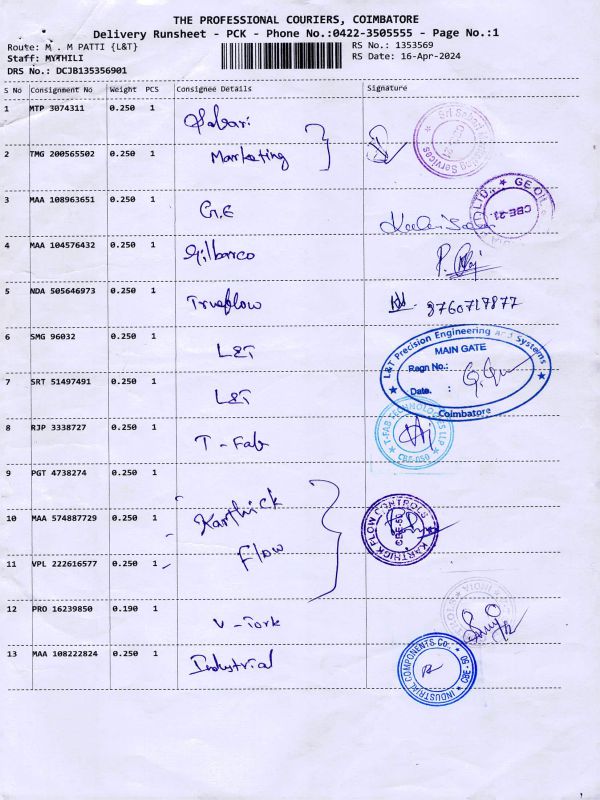 THE PROFESSIONAL COURIERS, COIMBATORE
Delivery Runsheet - PCK - Phone No.:0422-3505555 - Page No.:1
Route: M . M PATTI {L&T}
RS No.: 1353569
Staff: MYTHILI
RS Date: 16-Apr-2024
DRS No.: DCJB135356901
S No Consignment No Weight PCS Consignee Details Signature
1 MTP 3074311 0.250 1 Sabari
2 TMG 200565502 0.250 1 Marketing
3 MAA 108963651 0.250 1 G.E
GE OIL
CBE-21
4 MAA 104576432 0.250 1 Gilbarco
5 NDA 505646973 0.250 1 Trueflow 9760717877
6 SMG 96032 0.250 1 L&T
L&T Precision Engineering and Systems
MAIN GATE
Regn No.:
Date. :
Coimbatore
7 SRT 51497491 0.250 1 L&T
8 RJP 3338727 0.250 1 T-Fab
T-FAB TECHNOLOGIES LLP
CBE-050
9 PGT 4738274 0.250 1
10 MAA 574887729 0.250 1 Karthick
11 VPL 222616577 0.250 1 Flow
KARTHICK FLOW CONTROLS
CBE-50
12 PRO 16239850 0.190 1 V-Tork
13 MAA 108222824 0.250 1 Industrial
INDUSTRIAL COMPONENTS Co.
CBE - 50